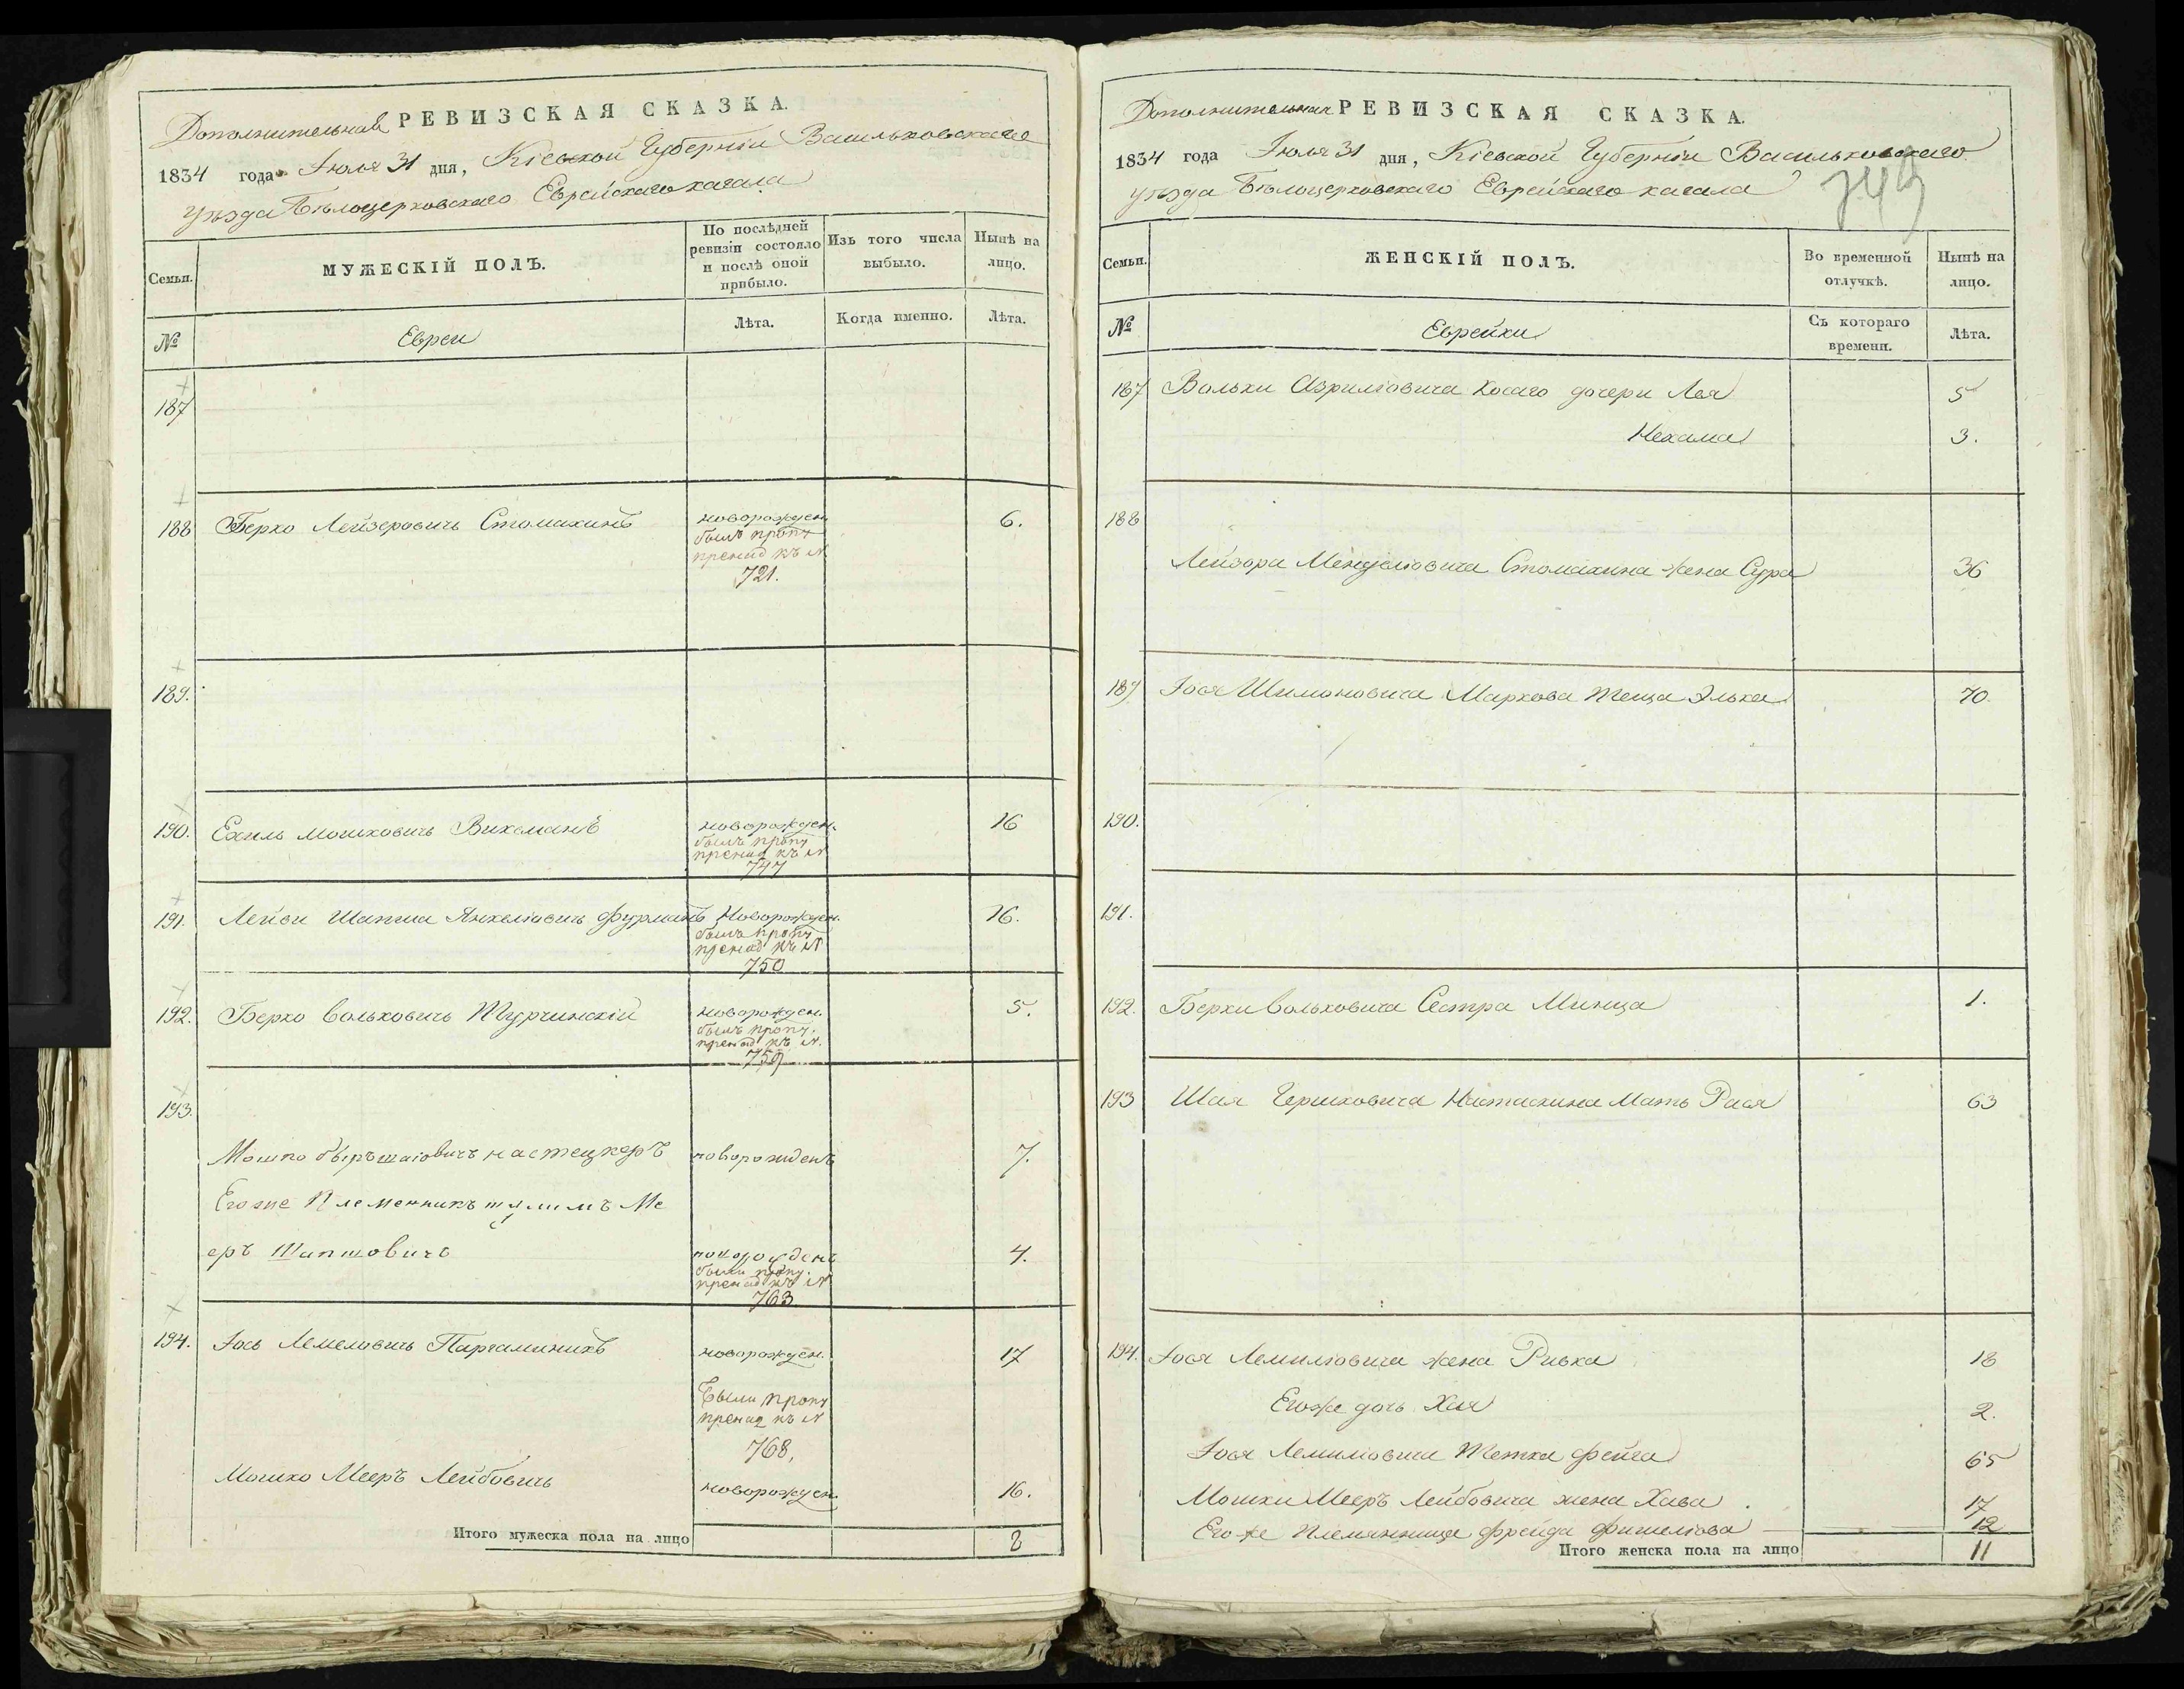 Дополнительная РЕВИЗСКАЯ СКАЗКА.
1834 года Іюля 31 дня, Кіевской Губерніи Васильковскаго
уѣзда Бѣлоцерковскаго Еврейскаго кагала
Семьи.
МУЖЕСКІЙ ПОЛЪ.
По послѣдней
ревизіи состояло
и послѣ оной
прибыло.
Изъ того числа
выбыло.
Нынѣ на
лицо.
№
Евреи
Лѣта.
Когда именно.
Лѣта.
187
188 Берко Лейзеровичь Стомахинъ новорожден. 6.
былъ проп
принад къ N
721.
189.
190. Ехиль Мошковичь Вихманъ новорожден. 16
былъ проп
принад къ N
747
191. Лейви Шапша Янкеліовичь Фурманъ Новорожден. 16.
былъ проп
принад къ N
750
192. Берко Вольковичь Турчинскій новорожден. 5.
былъ проп.
принад къ N.
759
193.
Мошко новорожденъ 7.
Егоже Племенникъ Ме
еръ Шапшовичъ новорожденъ 4.
были проп.
принад къ N
763
194. Іось Лемеловичь новорожден. 17
Были проп
принад къ N
768.
Мошко Мееръ Лейбовичь новорожден. 16.
Итого мужеска пола на лицо 8
Дополнительная РЕВИЗСКАЯ СКАЗКА.
1834 года Іюля 31 дня, Кіевской Губерніи Васильковскаго
уѣзда Бѣлоцерковскаго Еврейскаго кагала
Семьи.
ЖЕНСКІЙ ПОЛЪ.
Во временной
отлучкѣ.
Нынѣ на
лицо.
№
Еврейки
Съ котораго
времени.
Лѣта.
187 Вольки Азриліовича Косаго дочери Лея 5
Нехама 3.
188
Лейзора Менделіовича Стомахина жена Сура 36
189 Іося Шимоновича Маркова теща Элька 70.
190.
191.
192. Берки Вольковича Сестра Минца 1.
193 Шая Гершковича Настаскина Мать Рася 63
194. Іося Лемиліовича жена Ривка 18
Егоже дочь Хая 2.
Іося Лемиліовича Тетка Фейга 65
Мошки Мееръ Лейбовича жена Хава 17
Егоже племянница Фрейда Фишеліова 12
Итого женска пола на лицо 11